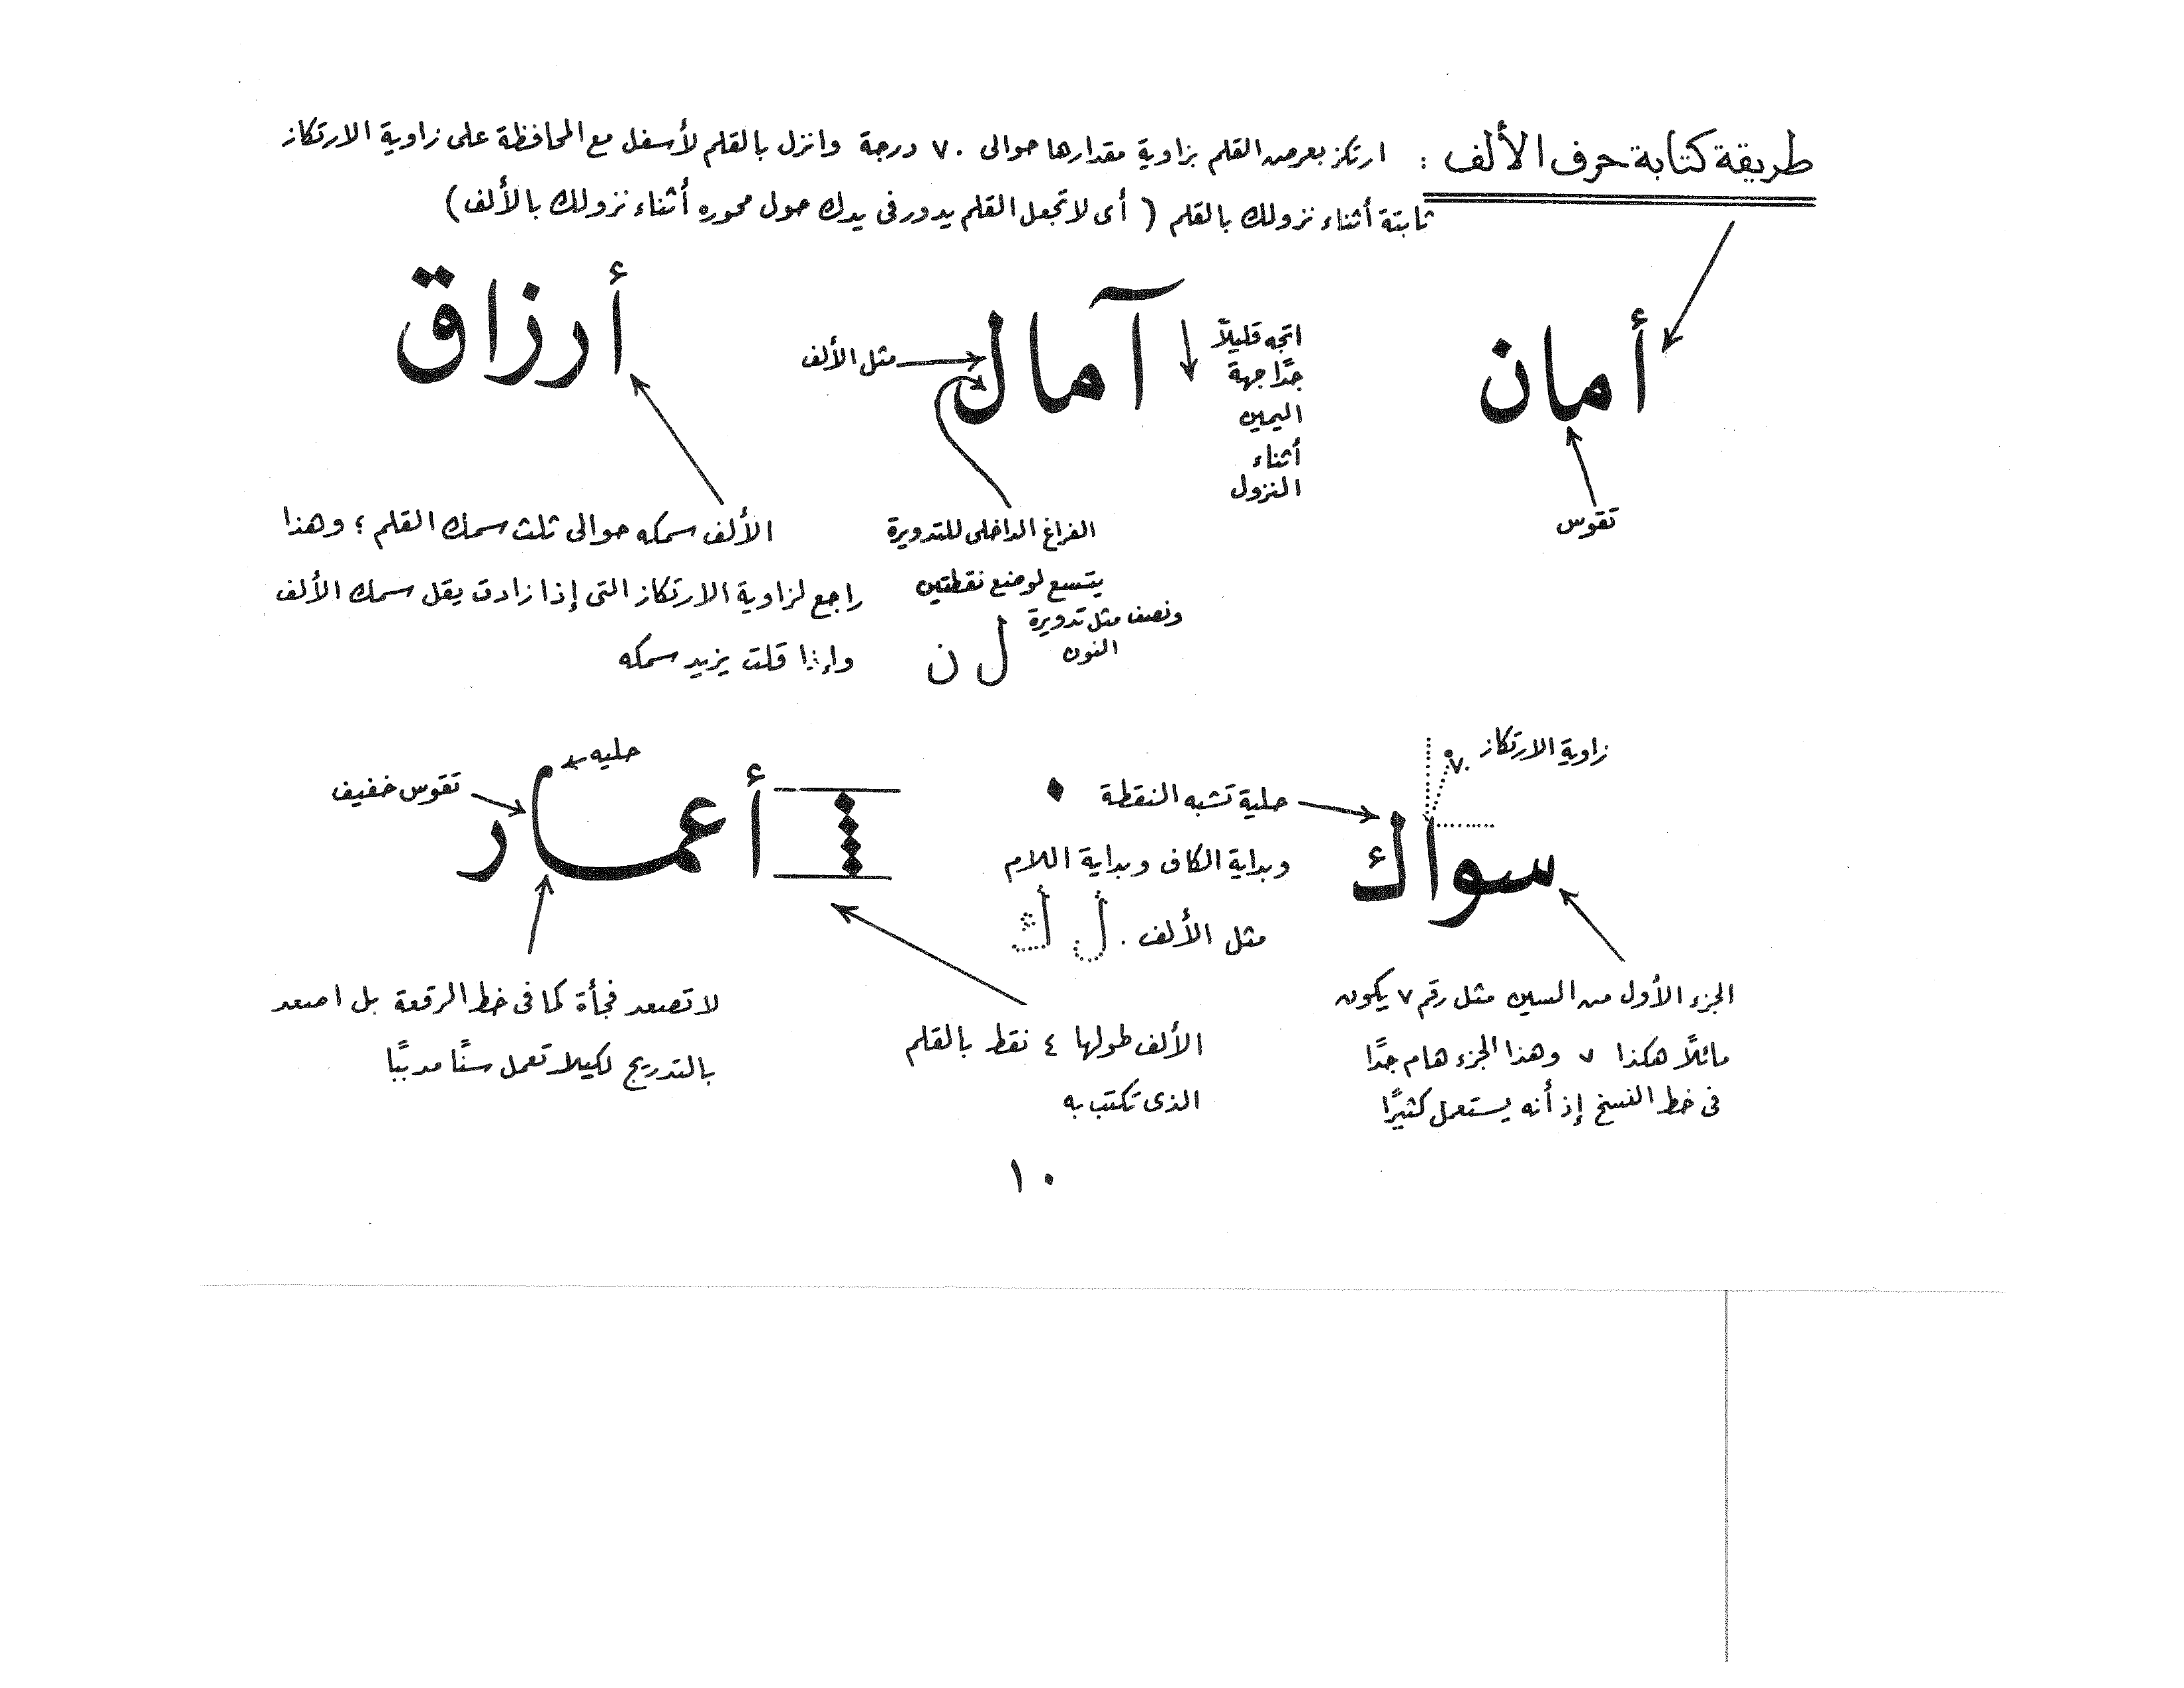 طريقة كتابة حرف الألف : ارتكز بعرض القلم بزاوية مقدارها حوالى ٧٠ درجة وانزل بالقلم لأسفل مع المحافظة على زاوية الارتكاز
ثابتة أثناء نزولك بالقلم ( أى لا تجعل القلم يدور فى يدك حول محوره أثناء نزولك بالألف )
أمان
تقوس
آمال
اتجه قليلاً
جدًا جهة
اليمين
أثناء
النزول
مثل الألف
الفراغ الداخلى للتدويرة
يتسع لوضع نقطتين
ونصف مثل تدويرة
النون
ل ن
أرزاق
الألف سمكه حوالى ثلث سمك القلم ؛ وهذا
راجع لزاوية الارتكاز التى إذا زادت يقل سمك الألف
وإذا قلت يزيد سمكه
زاوية الارتكاز
٧٠°
سواك
حلية تشبه النقطة
وبداية الكاف وبداية اللام
مثل الألف . ل ك
الجزء الأول من السين مثل رقم ٧ يكون
مائلاً هكذا ٧ وهذا الجزء هام جدًا
فى خط النسخ إذ أنه يستعمل كثيرًا
أعمار
حليه
تقوس خفيف
الألف طولها ٤ نقط بالقلم
الذى تكتب به
لا تصعد فجأة كما فى خط الرقعة بل اصعد
بالتدريج لكيلا تعمل سنًا مدببًا
١٠